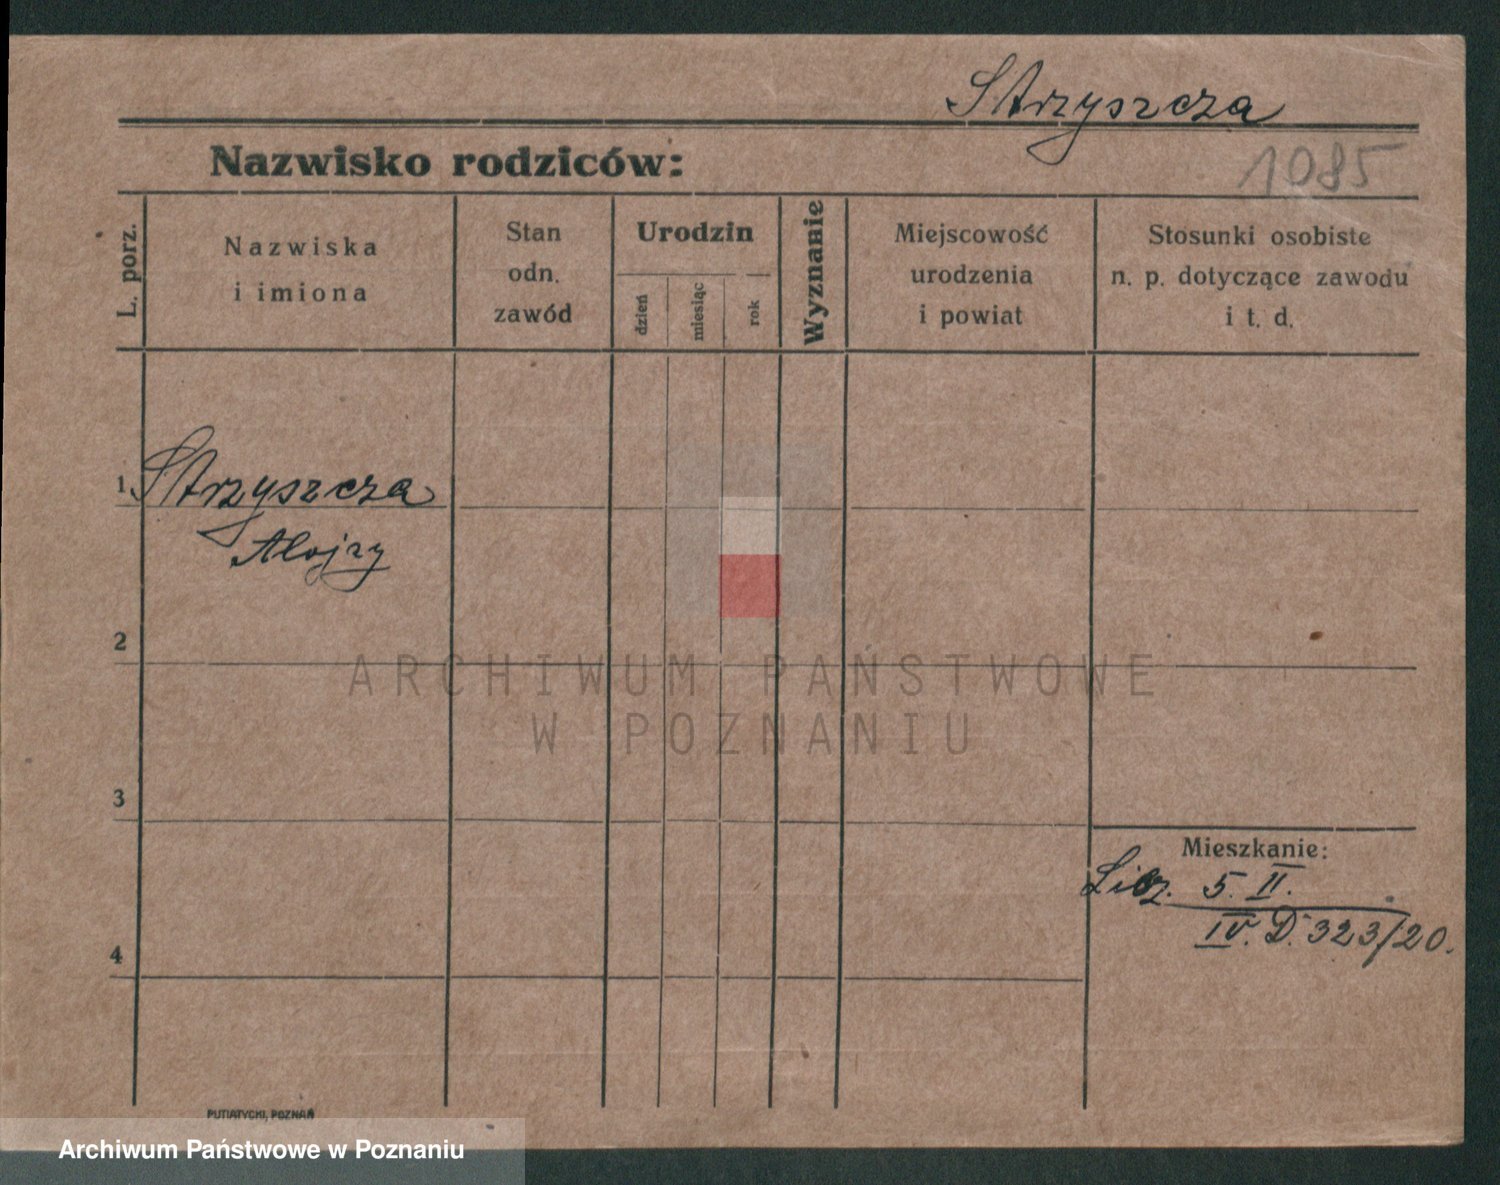 Strzyszcza
Nazwisko rodziców:
1085
L. porz.
Nazwiska
i imiona
Stan
odn.
zawód
Urodzin
dzień
miesiąc
rok
Wyznanie
Miejscowość
urodzenia
i powiat
Stosunki osobiste
n. p. dotyczące zawodu
i t. d.
1 Strzyszcza
Alojzy
2
ARCHIWUM PAŃSTWOWE
W POZNANIU
3
Mieszkanie:
5. II.
IV. D. 323/20.
4
PUTIATYCKI, POZNAŃ
Archiwum Państwowe w Poznaniu